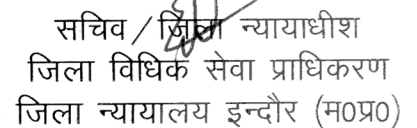 सचिव / जिला न्यायाधीश
जिला विधिक सेवा प्राधिकरण
जिला न्यायालय इन्दौर (म0प्र0)